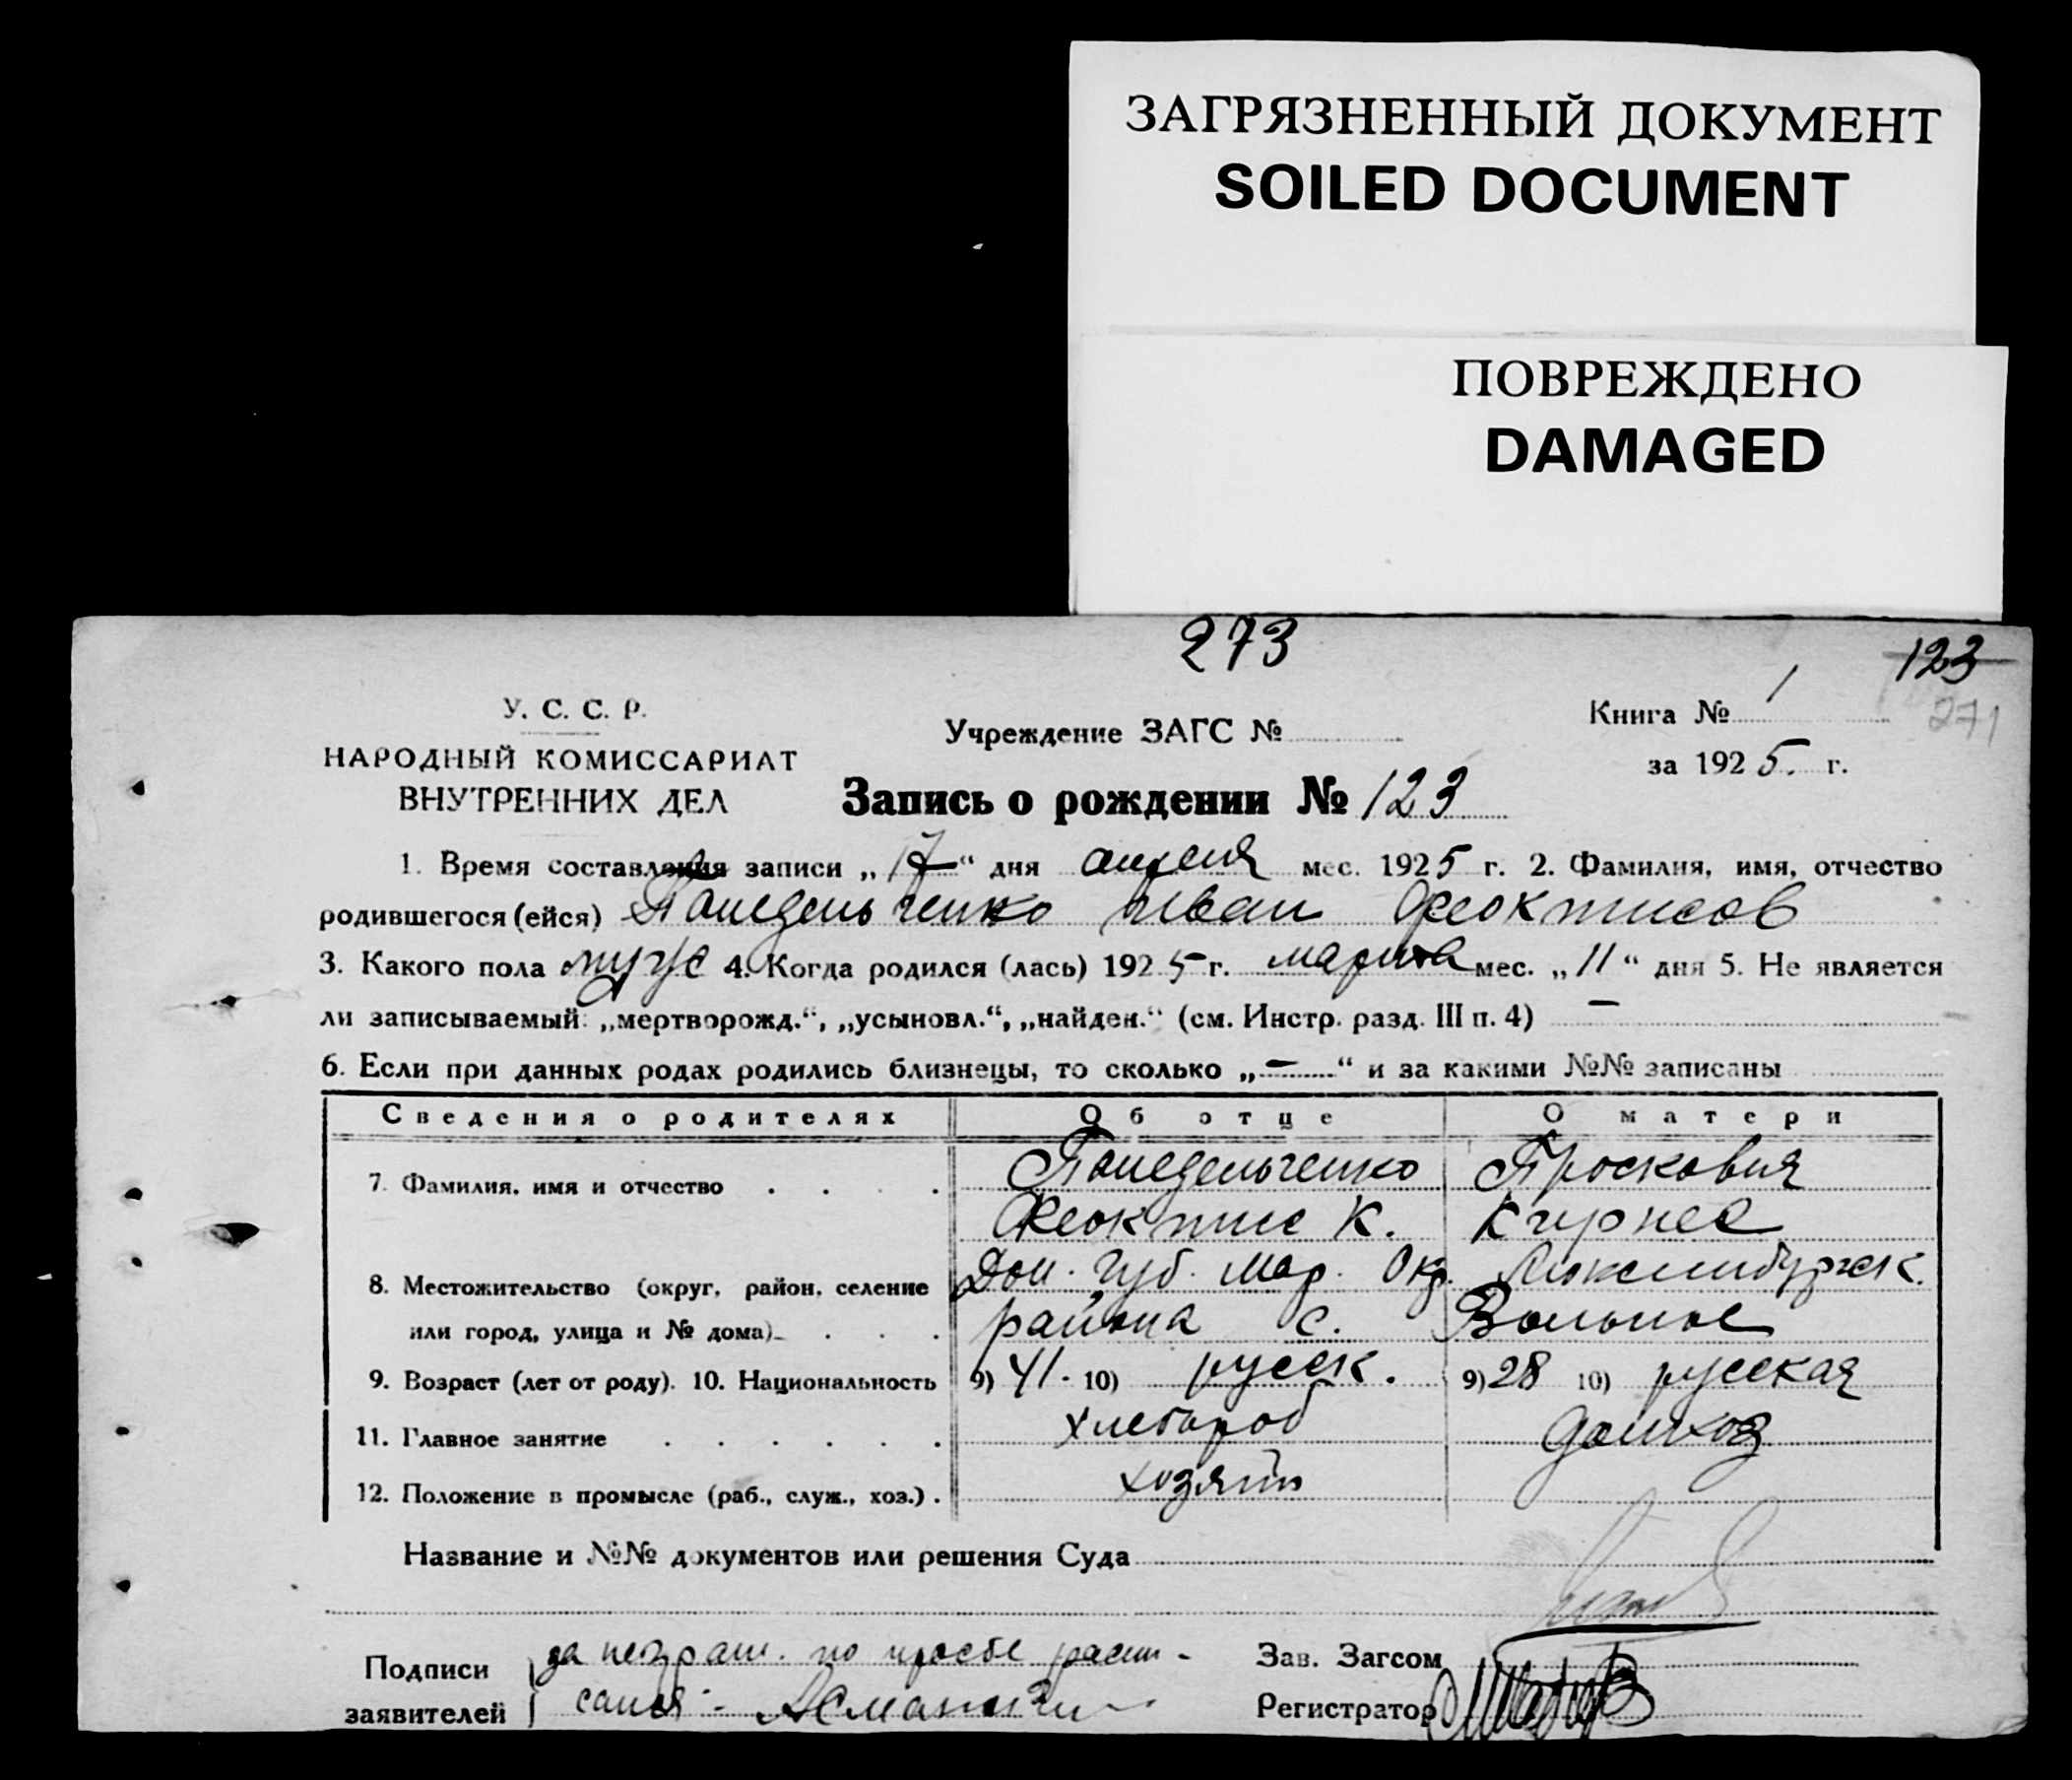 ЗАГРЯЗНЕННЫЙ ДОКУМЕНТ
SOILED DOCUMENT
ПОВРЕЖДЕНО
DAMAGED
273
123
271
У. С. С. Р.
НАРОДНЫЙ КОМИССАРИАТ
ВНУТРЕННИХ ДЕЛ
Учреждение ЗАГС №
Книга № 1
за 1925 г.
Запись о рождении № 123
1. Время составления записи „17“ дня апреля мес. 1925 г. 2. Фамилия, имя, отчество
родившегося (ейся) Понедельченко Иван Феоктисов
3. Какого пола муж 4. Когда родился (лась) 1925 г. марта мес. „11“ дня 5. Не является
ли записываемый: „мертворожд.“, „усыновл.“, „найден.“ (см. Инстр. разд. III п. 4) —
6. Если при данных родах родились близнецы, то сколько „—“ и за какими №№ записаны
Сведения о родителях Об отце О матери
7. Фамилия, имя и отчество Понедельченко Просковия
Феоктис К.
8. Местожительство (округ, район, селение Дон. Губ. Мар. Окр. Люксембургск.
или город, улица и № дома) района с. Вольное
9. Возраст (лет от роду). 10. Национальность 9) 41. 10) русск. 9) 28 10) русская
11. Главное занятие хлебороб домхоз
12. Положение в промысле (раб., служ., хоз.) хозяин
Название и №№ документов или решения Суда
Подписи заявителей
за неграм. по просбе распи-
сался
Зав. Загсом
Регистратор